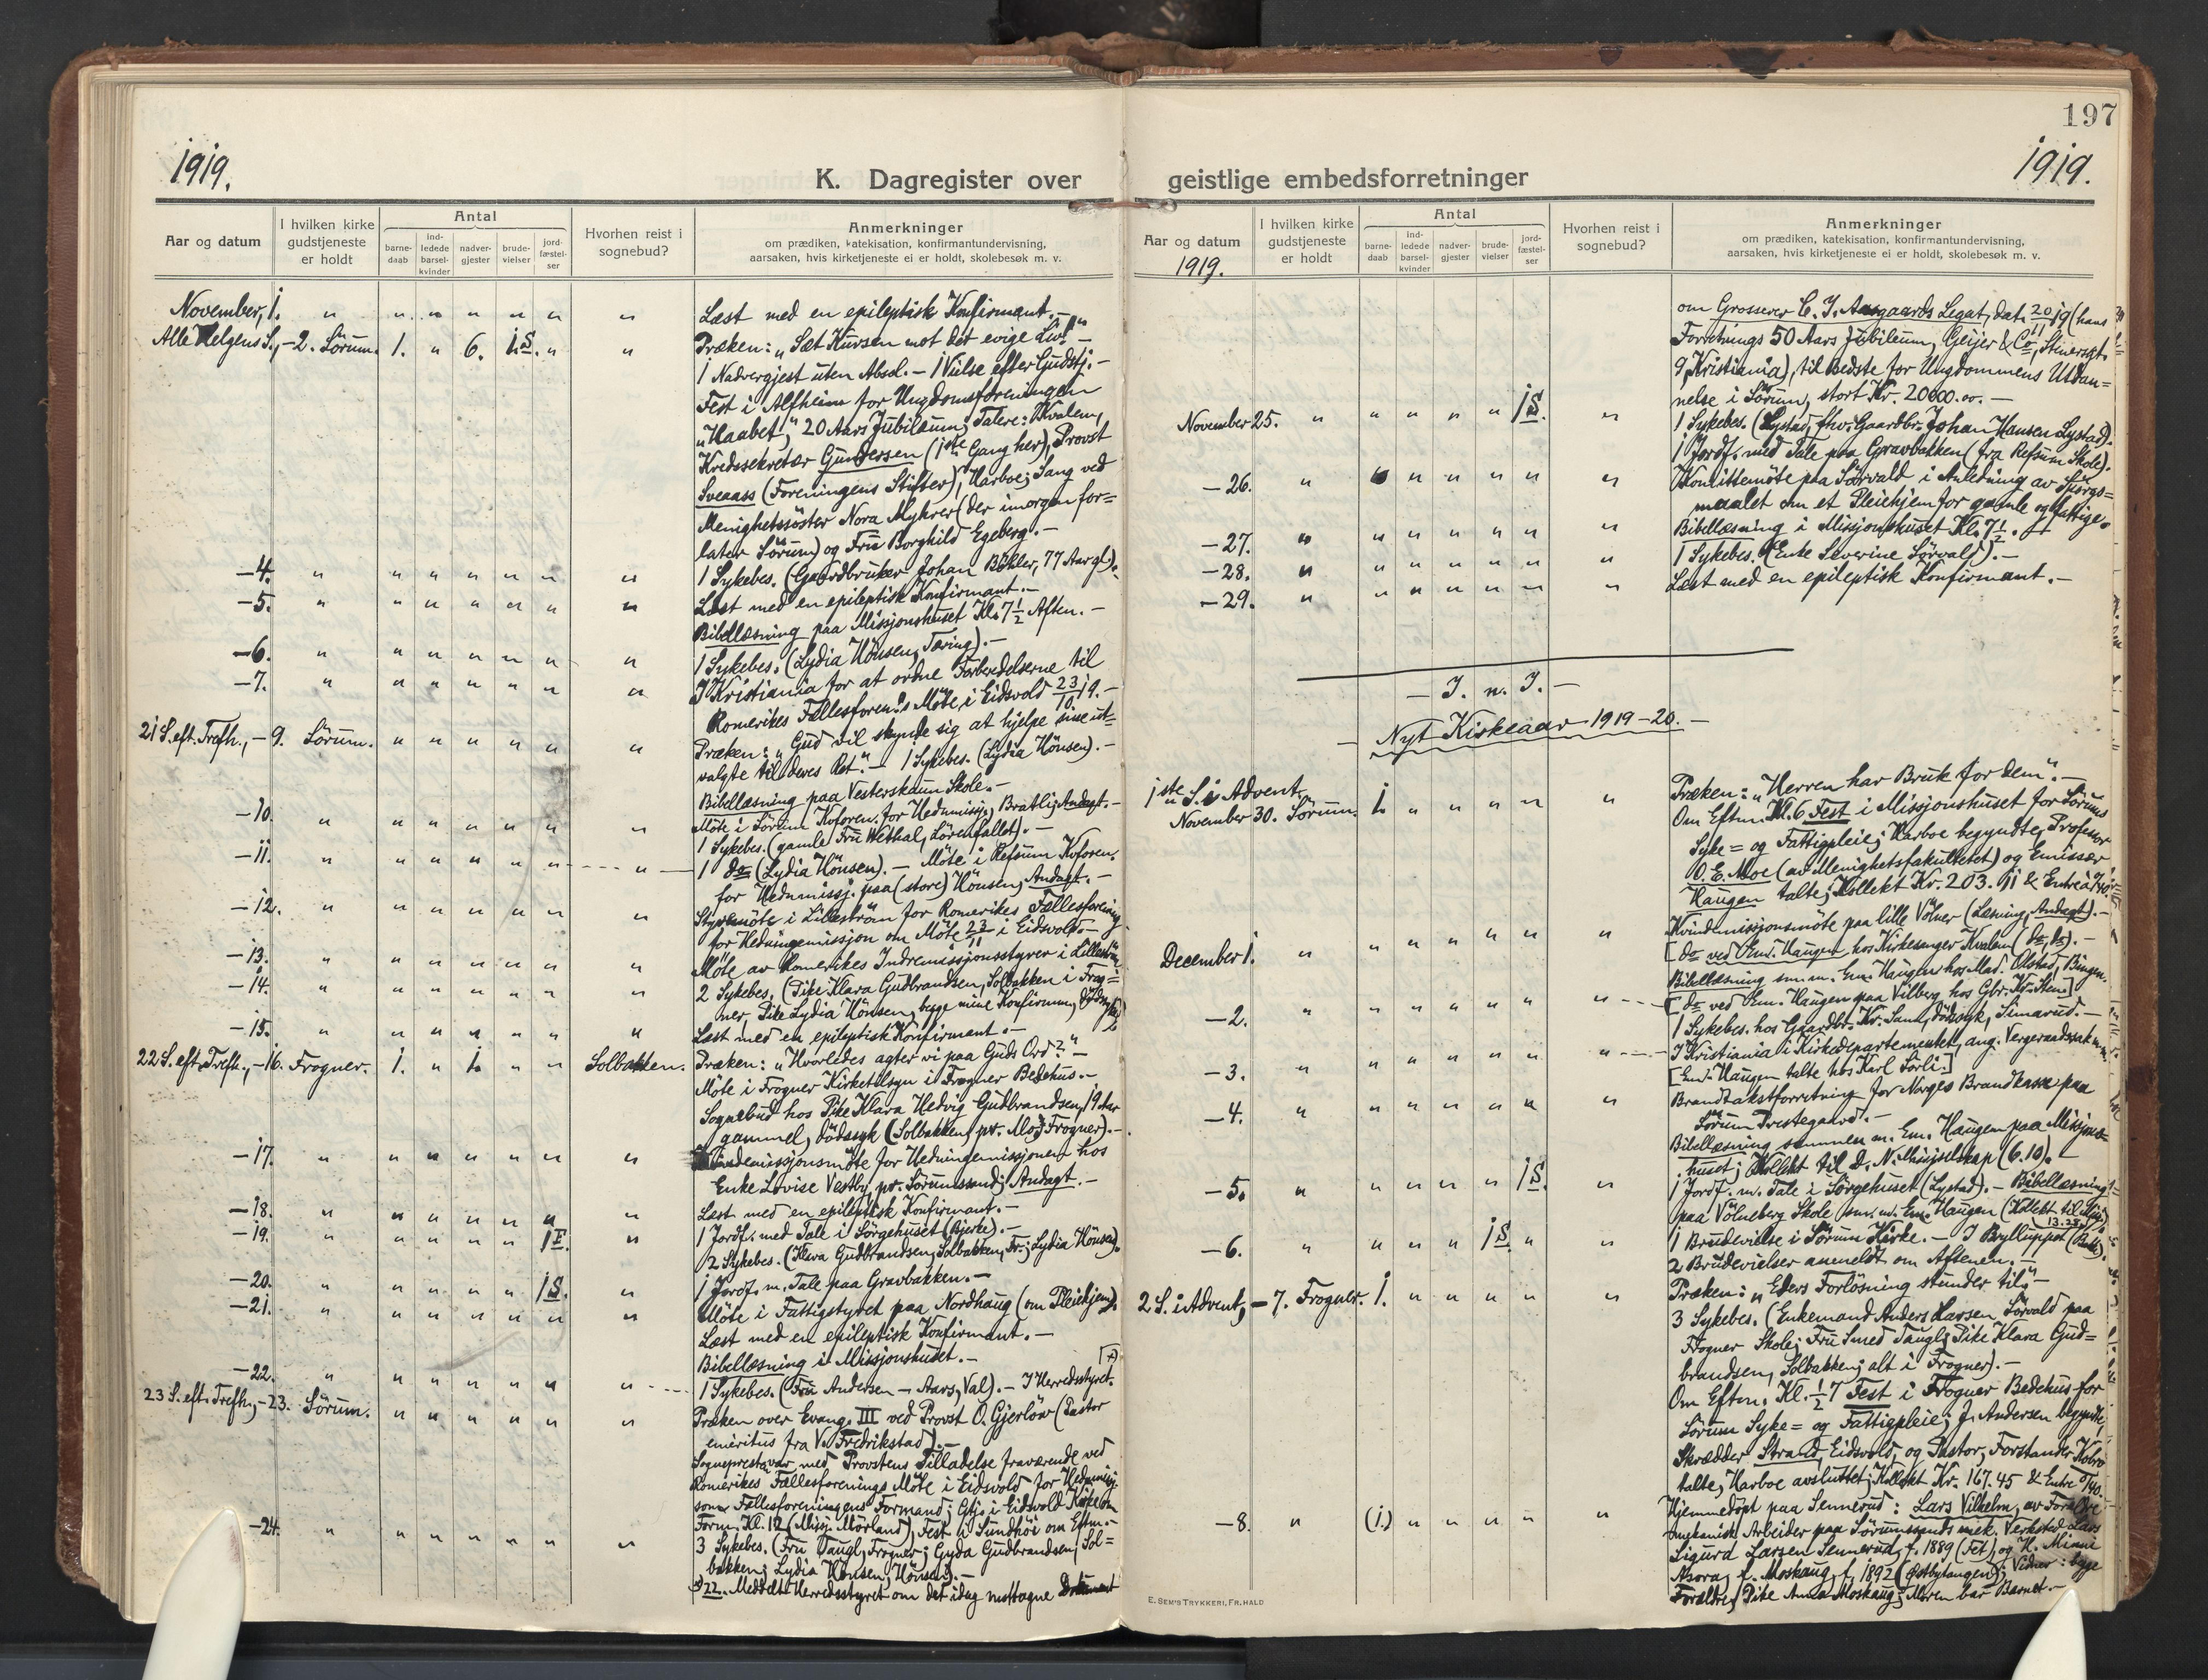 197
1919.
1919.
K. Dagregister over geistlige embedsforretninger
Aar og datum
I hvilken kirke gudstjeneste er holdt
Antal
barne-daab
ind-ledede barsel-kvinder
nadver-gjester
brude-vielser
jord-fæstel-ser
Hvorhen reist i sognebud?
Anmerkninger
om prædiken, katekisation, konfirmantundervisning,
aarsaken, hvis kirketjeneste ei er holdt, skolebesøk m. v.
November, 1. " " " " " " " Læst med en epileptisk Konfirmant.-
Alle Helgens S., -2. Sörum. 1. " 6. 1.S. " " Præken: "Sæt Kursen mot det evige Liv!"-
1 Nadvergjest uten Absol.- 1 Vielse efter Gudstj.-
Fest i Alfheim for Ungdomsforeningen
"Haabet," 20 Aars Jubilæum; Talere: Kvalem,
Kredssekretær Gundersen (1ste Gang her), Provst
Sveaass (Foreningens Stifter), Harboe; Sang ved
Menighetssöster Nora Myhrer (der imorgen for=
later Sörum) og Fru Borghild Egeberg.-
-4. " " " " " " " 1 Sykebes. (Gaardbruker Johan Böhler, 77 Aar gl.).
-5. " " " " " " " Læst med en epileptisk Konfirmant.-
Bibellæsning paa Missjonshuset Kl. 7 1/2 Aften.-
-6. " " " " " " " 1 Sykebes. (Lydia Hönsen, Tæring).-
-7. " " " " " " " I Kristiania for at ordne Forberedelserne til
Romerikes Fællesforen.s Möte i Eidsvold 23/10 19.-
21 S. eft. Trefh., -9. Sörum. " " " " " " Præken: "Gud vil skynde sig at hjelpe sine ut=
valgte til deres Ret."- 1 Sykebes. (Lydia Hönsen).-
Bibellæsning paa Vesterskaun Skole.-
-10. " " " " " " " Möte i Sörum Kvforen. for Hedmissj., Bratli; Andagt.-
1 Sykebes. (gamle Fru Wethal, Sörenfallet).-
-11. " " " " " " " 1 do (Lydia Hönsen).- Möte i Refsum Kvforen.
for Hedmissj. paa (store) Hönsen; Andagt.-
-12. " " " " " " " Styremöte i Lilleström for Romerikes Fællesforening
for Hedningemissjon om Möte 23/11 i Eidsvold.-
-13. " " " " " " " Möte av Romerikes Indremissjonsstyrer i Lilleström
-14. " " " " " " " 2 Sykebes. (Pike Klara Gudbrandsen, Solbakken i Frog=
ner, Pike Lydia Hönsen, begge mine Konfirman,
-15. " " " " " " " Læst med en epileptisk Konfirmant.-
22 S. eft. Trefh., -16. Frogner. 1. " 1. " " Solbakken. Præken: "Hvorledes agter vi paa Guds Ord?"-
Möte i Frogner Kirketilsyn i Frogner Bedehus.-
Sognebud hos Pike Klara Hedvig Gudbrandsen, 19 Aar
gammel, dödssyk (Solbakken, pr. Moss, Frogner).-
-17. " " " " " " " Kvindemissjonsmöte for Hedningemissjonen hos
Enke Lovise Vestby, pr. Sörumssand; Andagt.-
-18. " " " " " " " Læst med en epileptisk Konfirmant.-
-19. " " " " " 1F. " 1 Jordf. med Tale i Sörgehuset (Bjerke).-
2 Sykebes. (Klara Gudbrandsen, Solbakken, Fr.; Lydia Hönsen).
-20. " " " " " 1S. " 1 Jordf. m. Tale paa Gravbakken.-
-21. " " " " " " " Möte i Fattigstyret paa Nordhaug (om Pleiehjem).
Læst med en epileptisk Konfirmant.-
Bibellæsning i Missjonshuset.-
-22. " " " " " " " 1 Sykebes. (Fru Andersen - Aars, Val).- I Herredsstyret.
23 S. eft. Trefh., -23. Sörum. " " " " " " Præken over Evang. III ved Provst O. Gjerlöw (Pastor
emeritus fra V. Fredrikstad).-
Sogneprest var med Provstens Tilladelse fraværende ved
Romerikes Fællesforenings Möte i Eidsvold for Hedmissj.
som Fællesforeningens Formand; Gtj. i Eidsvold Kirke om
Form. Kl. 12 (Missj. Mörland), Fest i Sundhöi om Eftm.-
-24. " " " " " " " 3 Sykebes. (Fru Taugl, Frogner; Gyda Gudbrandsen, Sol=
bakken; Lydia Hönsen, Hönsen).-
22. Meddelt Herredsstyret om det idag mottagne Dokument
Aar og datum
1919.
I hvilken kirke gudstjeneste er holdt
Antal
barne-daab
ind-ledede barsel-kvinder
nadver-gjester
brude-vielser
jord-fæstel-ser
Hvorhen reist i sognebud?
Anmerkninger
om prædiken, katekisation, konfirmantundervisning,
aarsaken, hvis kirketjeneste ei er holdt, skolebesøk m. v.
om Grosserer C. J. Aasgaards Legat, dat. 20/11 19 (hans
Forretnings 50 Aars Jubileum, Geijer & Co, Stenersgt.
9, Kristiania), til Bedste for Ungdommens Utdan=
nelse i Sörum, stort Kr. 20000.00.-
November 25. " " " " " 1S. " 1 Sykebes. (Lystad, fhv. Gaardbr. Johan Hansen Lystad).
1 Jordf. med Tale paa Gravbakken (fra Refsum Skole).
-26. " " " " " " " Komittemöte paa Sörvald i Anledning av Spörgs=
maalet om et Pleiehjem for gamle og fattige.
-27. " " " " " " " Bibellæsning i Missjonshuset Kl. 7 1/2.-
-28. " " " " " " " 1 Sykebes. (Enke Severine Sörvald).-
-29. " " " " " " " Læst med en epileptisk Konfirmant.-
- I. n. J. -
- Nyt Kirkeaar 1919-20. -
1ste S. i Advent,
November 30. Sörum. 1. " " " " " Præken: "Herren har Bruk for dem".-
Om Eftm. Kl. 6 Fest i Missjonshuset for Sörums
Syke= og Fattigpleie; Harboe begyndte, Professor
O. E. Moe (av Menighetsfakultetet) og Emissær
Haugen talte; Kollekt Kr. 203.11 & Entre
December 1. " " " " " " " Kvindemissjonsmöte paa lille Völner (Læsning, Andagt).-
[do ved Em. Haugen hos Kirkesanger Kvalem (do, do).-
Bibellæsning sm. m. Em. Haugen hos Mad. Olstad, Bingen.
-2. " " " " " " " [do ved Em. Haugen paa Vilberg hos Gbr. Kr. Sten.]
1 Sykebes. hos Gaardbr. Kr. Sand, dödssyk, Simarud.-
-3. " " " " " " " I Kristiania i Kirkedepartementet, ang. Vergeraadssak m.m.
[Em. Haugen talte hos Karl Sörli.]
-4. " " " " " " " Brandtakstforretning for Norges Brandkasse paa
Sörum Prestegaard.-
Bibellæsning sammen m. Em. Haugen paa Missjons=
huset; Kollekt til D. N. Missjselskap (6.10).-
-5. " " " " " 1S. " 1 Jordf. m. Tale i Sörgehuset (Lystad).- Bibellæsning
paa Völneberg Skole sm. m. Em. Haugen (Kollekt til
13.25
-6. " " " " 1S. " " 1 Brudevielse i Sörum Kirke.- I Bryllupet
2 Brudevielser anmeldt om Aftenen.-
2 S. i Advent, -7. Frogner. 1. " " " " " Præken: "Eders Forlösning stunder til."-
3 Sykebes. (Enkemand Anders Larsen Sörvald paa
Frogner Skole; Fru Smed Taugl; Pike Klara Gud=
brandsen, Solbakken; alt i Frogner).-
Om Eftm. Kl. 1/2 7 Fest i Frogner Bedehus for
Sörum Syke= og Fattigpleie; J. Andersen begyndte,
Skrædder Strand, Eidsvold, og Pastor, Forstander Kobro
talte, Harboe avsluttet; Kollekt Kr. 167.45 & Entre
-8. " (1.) " " " " " Hjemmedöpt paa Sennerud: Lars Vilhelm, av Forældre
mekanisk Arbeider paa Sörumssands mek. Verksted Lars
Sigurd Larsen Sennerud, f. 1889 (Fet), og H. Minni
Nsora, f. Moskaug, f. 1892 (Östbytangen); Vidner: begge
Forældre, Pike Anna Moskaug; Moren bar Barnet.-
E. SEM'S TRYKKERI, FR.HALD